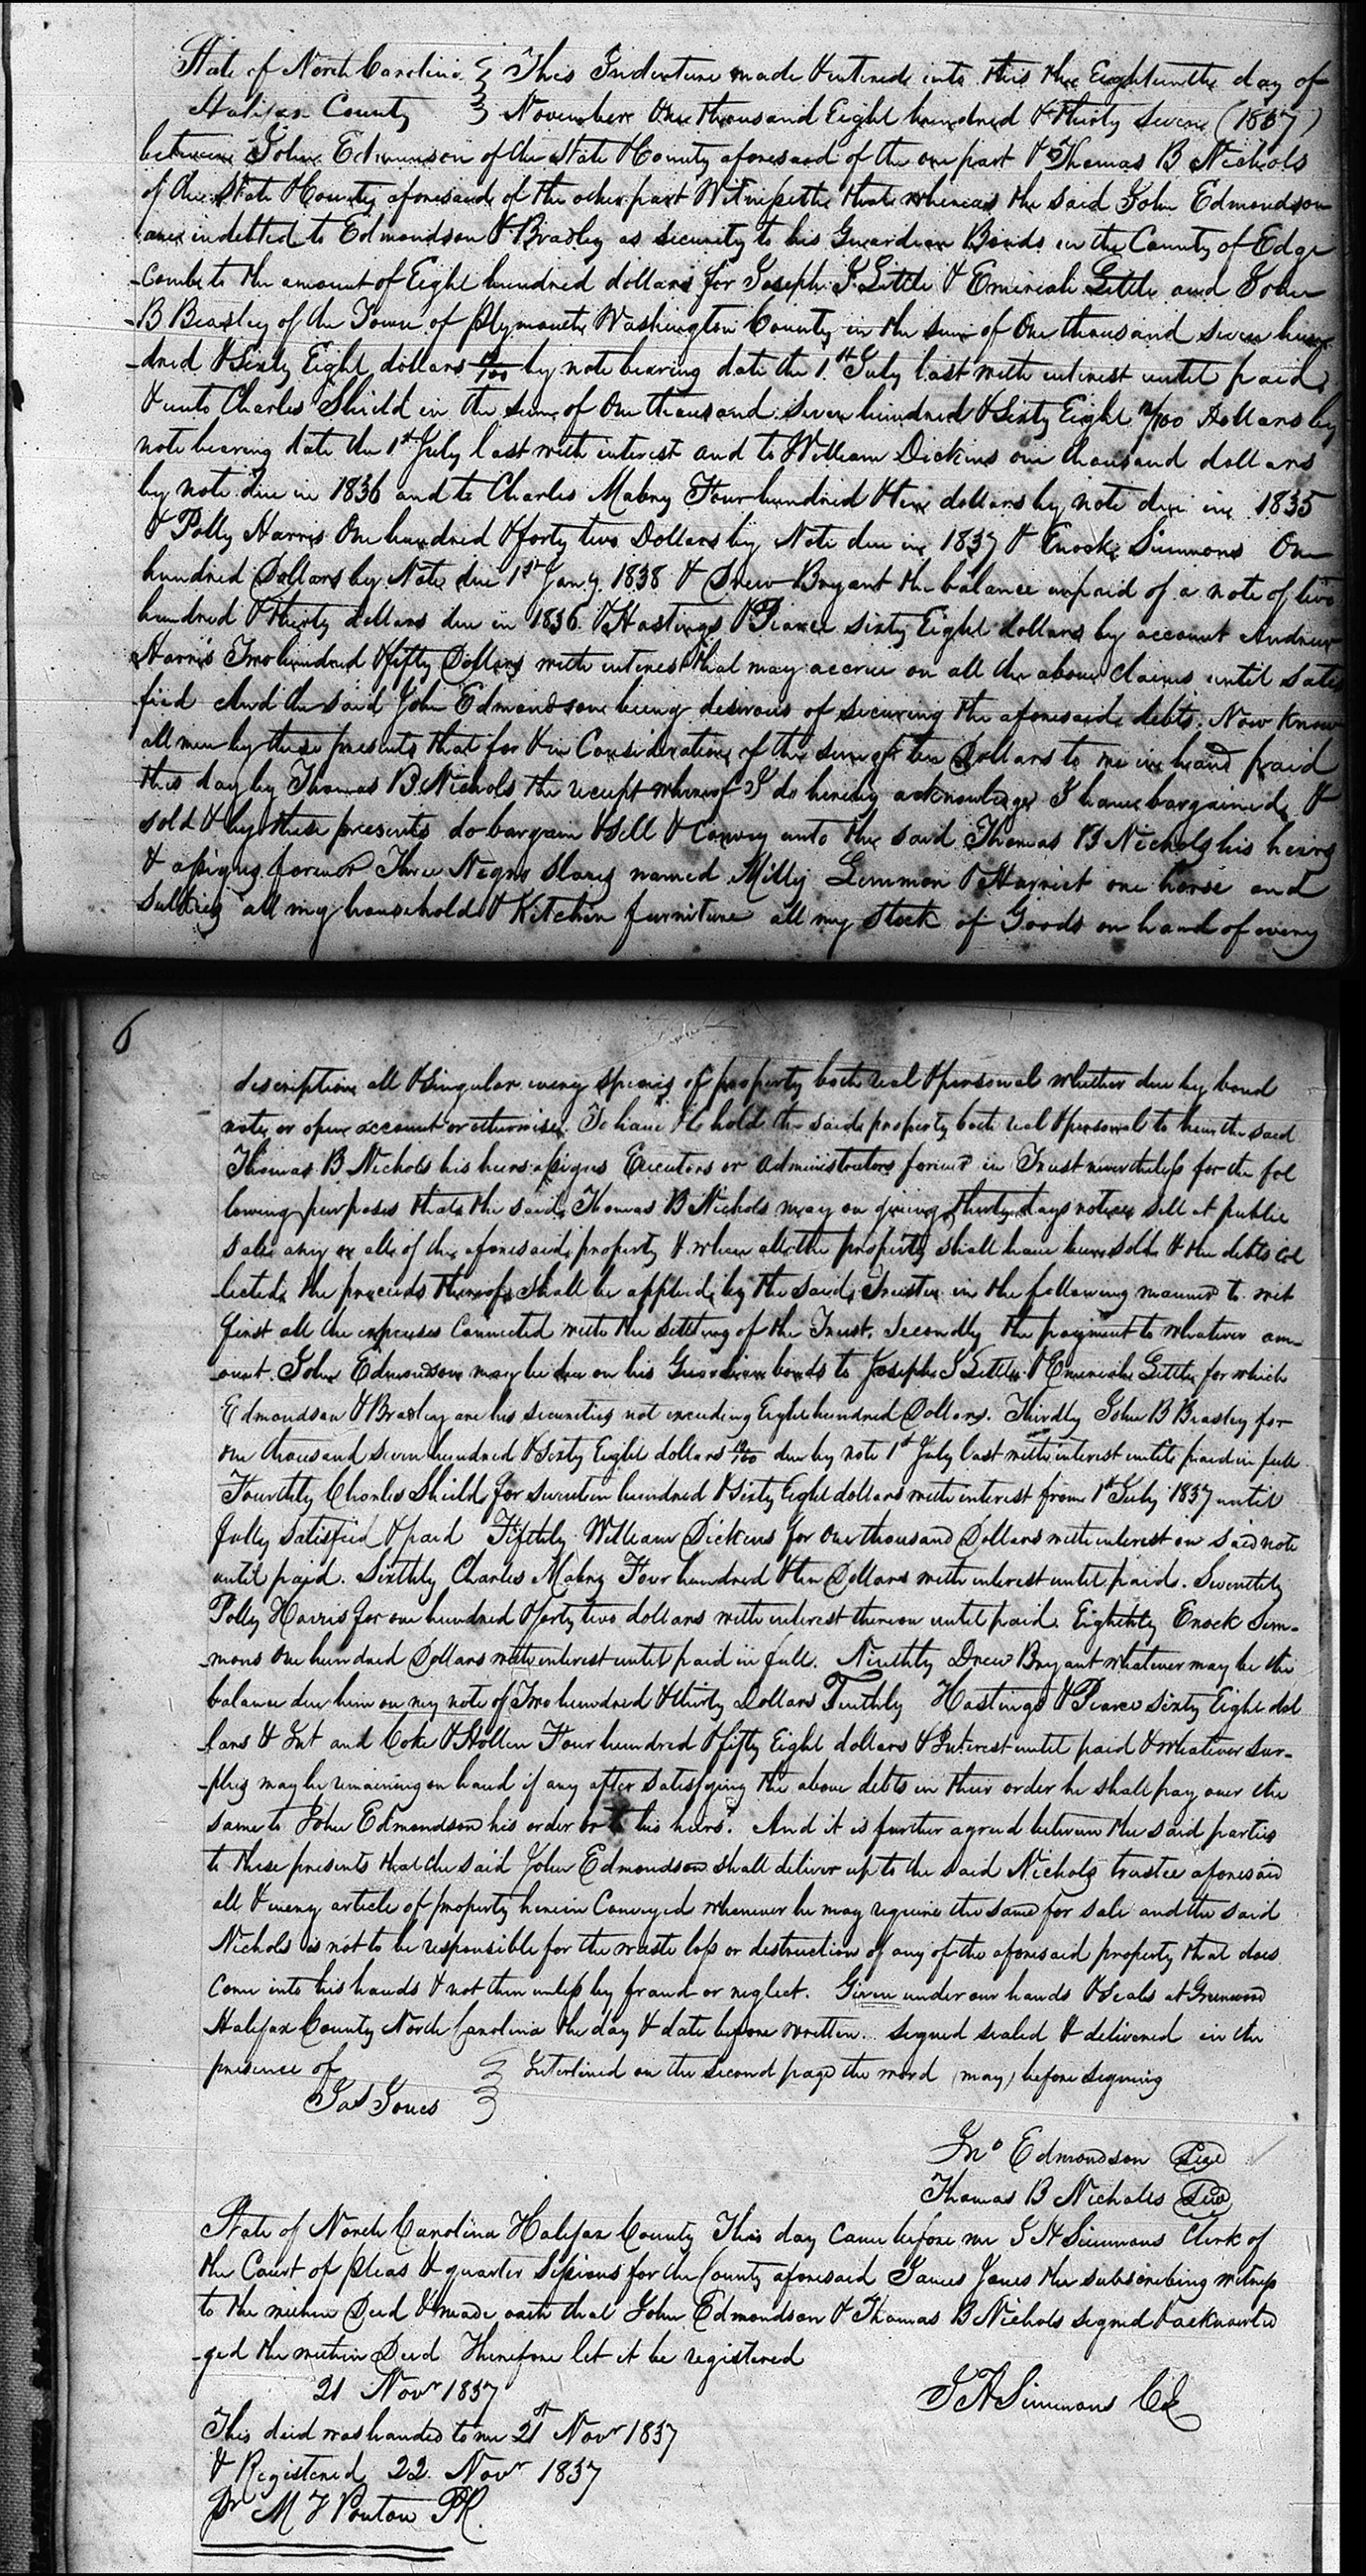 State of North Carolina This Indenture made & entered into this the Eighteenth day of
Halifax County November One thousand Eight hundred & thirty seven (1837)
between John Edmunson of the State & County aforesaid of the one part & Thomas B Nichols
of the State & County aforesaid of the other part Witnesseth that whereas the said John Edmondson
indebted to Edmondson & Bradley as security to his Guardian Bonds in the County of Edge
-combe to the amount of Eight hundred dollars for Joseph J Little & Emeriah Little and John
-B Beasley of the Town of Plymouth Washington County in the sum of One thousand seven hun
-dred & Sixty Eight dollars 12/100 by note bearing date the 1st July last with interest until paid
& unto Charles Shield in the sum of One thousand seven hundred & Sixty Eight 12/100 Dollars by
note bearing date the 1st July last with interest and to William Dickins one thousand dollars
by note due in 1836 and to Charles Mabry Four hundred & ten dollars by note due in 1835
& Polly Harris One hundred & forty two Dollars by Note due in 1837 & Enock Simmons One
hundred Dollars by Note due 1st Jany. 1838 & Drew Bryant the balance unpaid of a note of two
hundred & thirty dollars due in 1836 & Hastings & Pearce sixty Eight dollars by account Andrew
Harris Two hundred & fifty Dollars with interest that may accrue on all the above claims until satis
fied And the said John Edmondson being desirous of securing the aforesaid debts. Now Know
all men by these presents that for & in Consideration of the sum of ten Dollars to me in hand paid
this day by Thomas B Nichols the receipt whereof I do hereby acknowledge I have bargained &
sold & by these presents do bargain & sell & convey unto the said Thomas B Nichols his heirs
& assigns forever Three Negro Slaves named Milly Lemmon & Harriet one horse and
Sulkey all my household & Kitchen furniture all my Stock of Goods on hand of every
6
description all & singular every species of property both real & personal whether due by bond
note or open account or otherwise. To have & to hold the said property both real & personal to him the said
Thomas B Nichols his heirs assigns Executors or Administrators forever in Trust nevertheless for the fol
lowing purposes that the said Thomas B Nichols may on giving thirty days notice sell at public
sale any or all of the aforesaid property & when all the property shall have been sold & the debts col
-lected the proceeds thereof shall be applied by the said Trustee in the following manner to wit
first all the expenses connected with the settling of the Trust. Secondly the payment to whatever am-
ount John Edmondson may be due on his Guardian bonds to Joseph J Little & Emeriah Little for which
Edmondson & Bradley are his securities not exceeding Eight hundred Dollars. Thirdly John B Beasley for
one thousand seven hundred & Sixty Eight dollars 12/100 due by note 1st July last with interest until paid in full
Fourthly Charles Shield for seventeen hundred & sixty Eight dollars with interest from 1st July 1837 until
fully satisfied & paid Fifthly William Dickins for One thousand Dollars with interest on said note
until paid. Sixthly Charles Mabry Four hundred & ten Dollars with interest until paid. Seventhly
Polly Harris for one hundred & forty two dollars with interest thereon until paid. Eighthly Enock Sim-
-mons One hundred Dollars with interest until paid in full. Ninthly Drew Bryant whatever may be the
balance due him on my note of Two hundred & thirty Dollars Tenthly Hastings & Pearce Sixty Eight dol
lars & Int and Coke & Hollen Four hundred & fifty Eight dollars & Interest until paid & whatever sur-
-plus may be remaining on hand if any after satisfying the above debts in their order he shall pay over the
same to John Edmondson his order or to his heirs. And it is further agreed between the said parties
to these presents that the said John Edmondson shall deliver up to the said Nichols trustee aforesaid
all & every article of property herein Conveyed whenever he may require the same for sale and the said
Nichols is not to be responsible for the waste loss or destruction of any of the aforesaid property that does
come into his hands & not then unless by fraud or neglect. Given under our hands & Seals at Greenwood
Halifax County North Carolina the day & date before written. Signed sealed & delivered in the
presence of Interlined on the second page the word (may) before signing
Jas Jones
Jno Edmondson Seal
Thomas B Nicholls Seal
State of North Carolina Halifax County This day came before me S H Simmons Clerk of
the Court of pleas & quarter Sessions for the County aforesaid James Jones the subscribing witness
to the within Deed & made oath that John Edmondson & Thomas B Nichols signed & acknowled
-ged the within Deed Therefore let it be registered
21 Novr 1837
S H Simmons Clk
This deed was handed to me 21st Novr 1837
& Registered 22 Novr 1837
Pr M F Ponton PR.